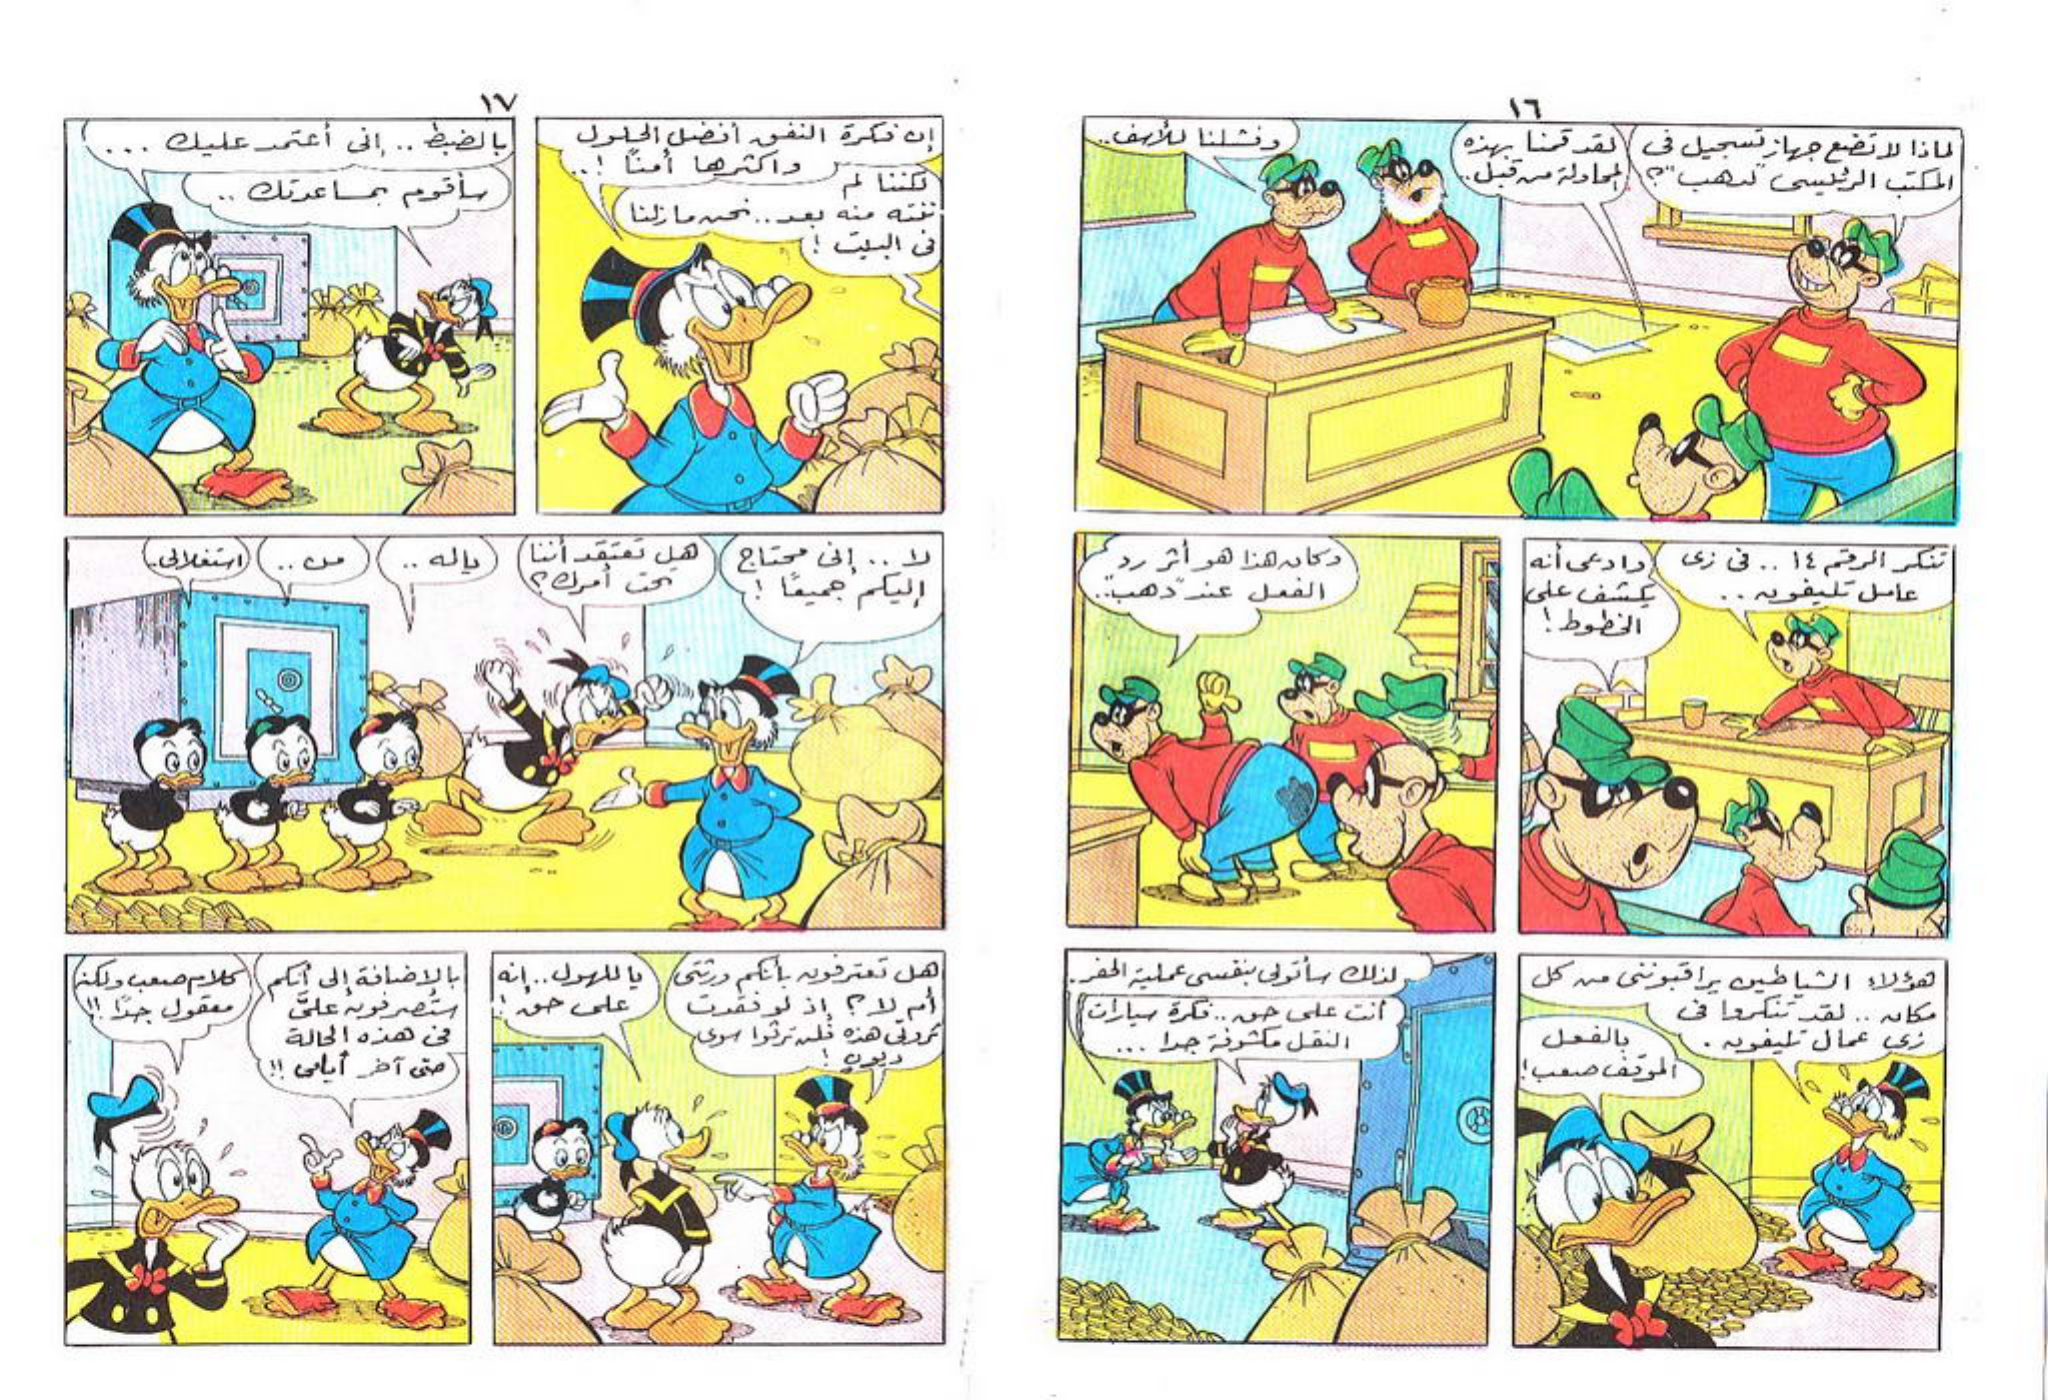 ١٦
لماذا لا تضع جهاز تسجيل فى
المكتب الرئيسى "لدهب"؟
لقد قمنا بهذه
المحاولة من قبل..
وفشلنا للأسف..
تنكر الرقم ١٤ .. فى زى
عامل تليفون ..
وادعى أنه
يكشف على
الخطوط!
وكان هذا هو أثر رد
الفعل عند "دهب"..
هؤلاء الشياطين يراقبوننى من كل
مكان .. لقد تنكروا فى
زى عمال تليفون .
بالفعل
الموقف صعب!
لذلك سأتولى بنفسى عملية الحفر.
أنت على حق .. فكرة سيارات
النقل مكشوفة جدا ...
١٧
إن فكرة النفق أفضل الحلول
وأكثرها أمناً !..
لكننا لم
ننته منه بعد .. نحن مازلنا
فى البيت !
بالضبط .. إنى أعتمد عليك ...
سأقوم بمساعدتك ..
لا .. إنى محتاج
إليكم جميعًا !
هل تعتقد أننا
تحت أمرك؟
ياله ..
من ..
استغلالى.
هل تعترفون بأنكم ورثتى
أم لا ؟ إذ لو فقدت
ثروتى هذه فلن ترثوا سوى
ديون !
يا للهول .. إنه
على حق !
بالإضافة إلى أنكم
ستصرفون علىَّ
فى هذه الحالة
حتى آخر أيامى !!
كلام صعب ولكنه
معقول جدًا !!